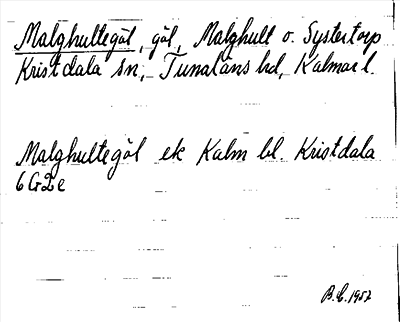 Malghultegöl, göl, Malghult o. Systertorp
Kristdala sn, Tunaläns hd, Kalmar l.
Malghultegöl ek Kalm bl. Kristdala
6G2e
B.E. 1952